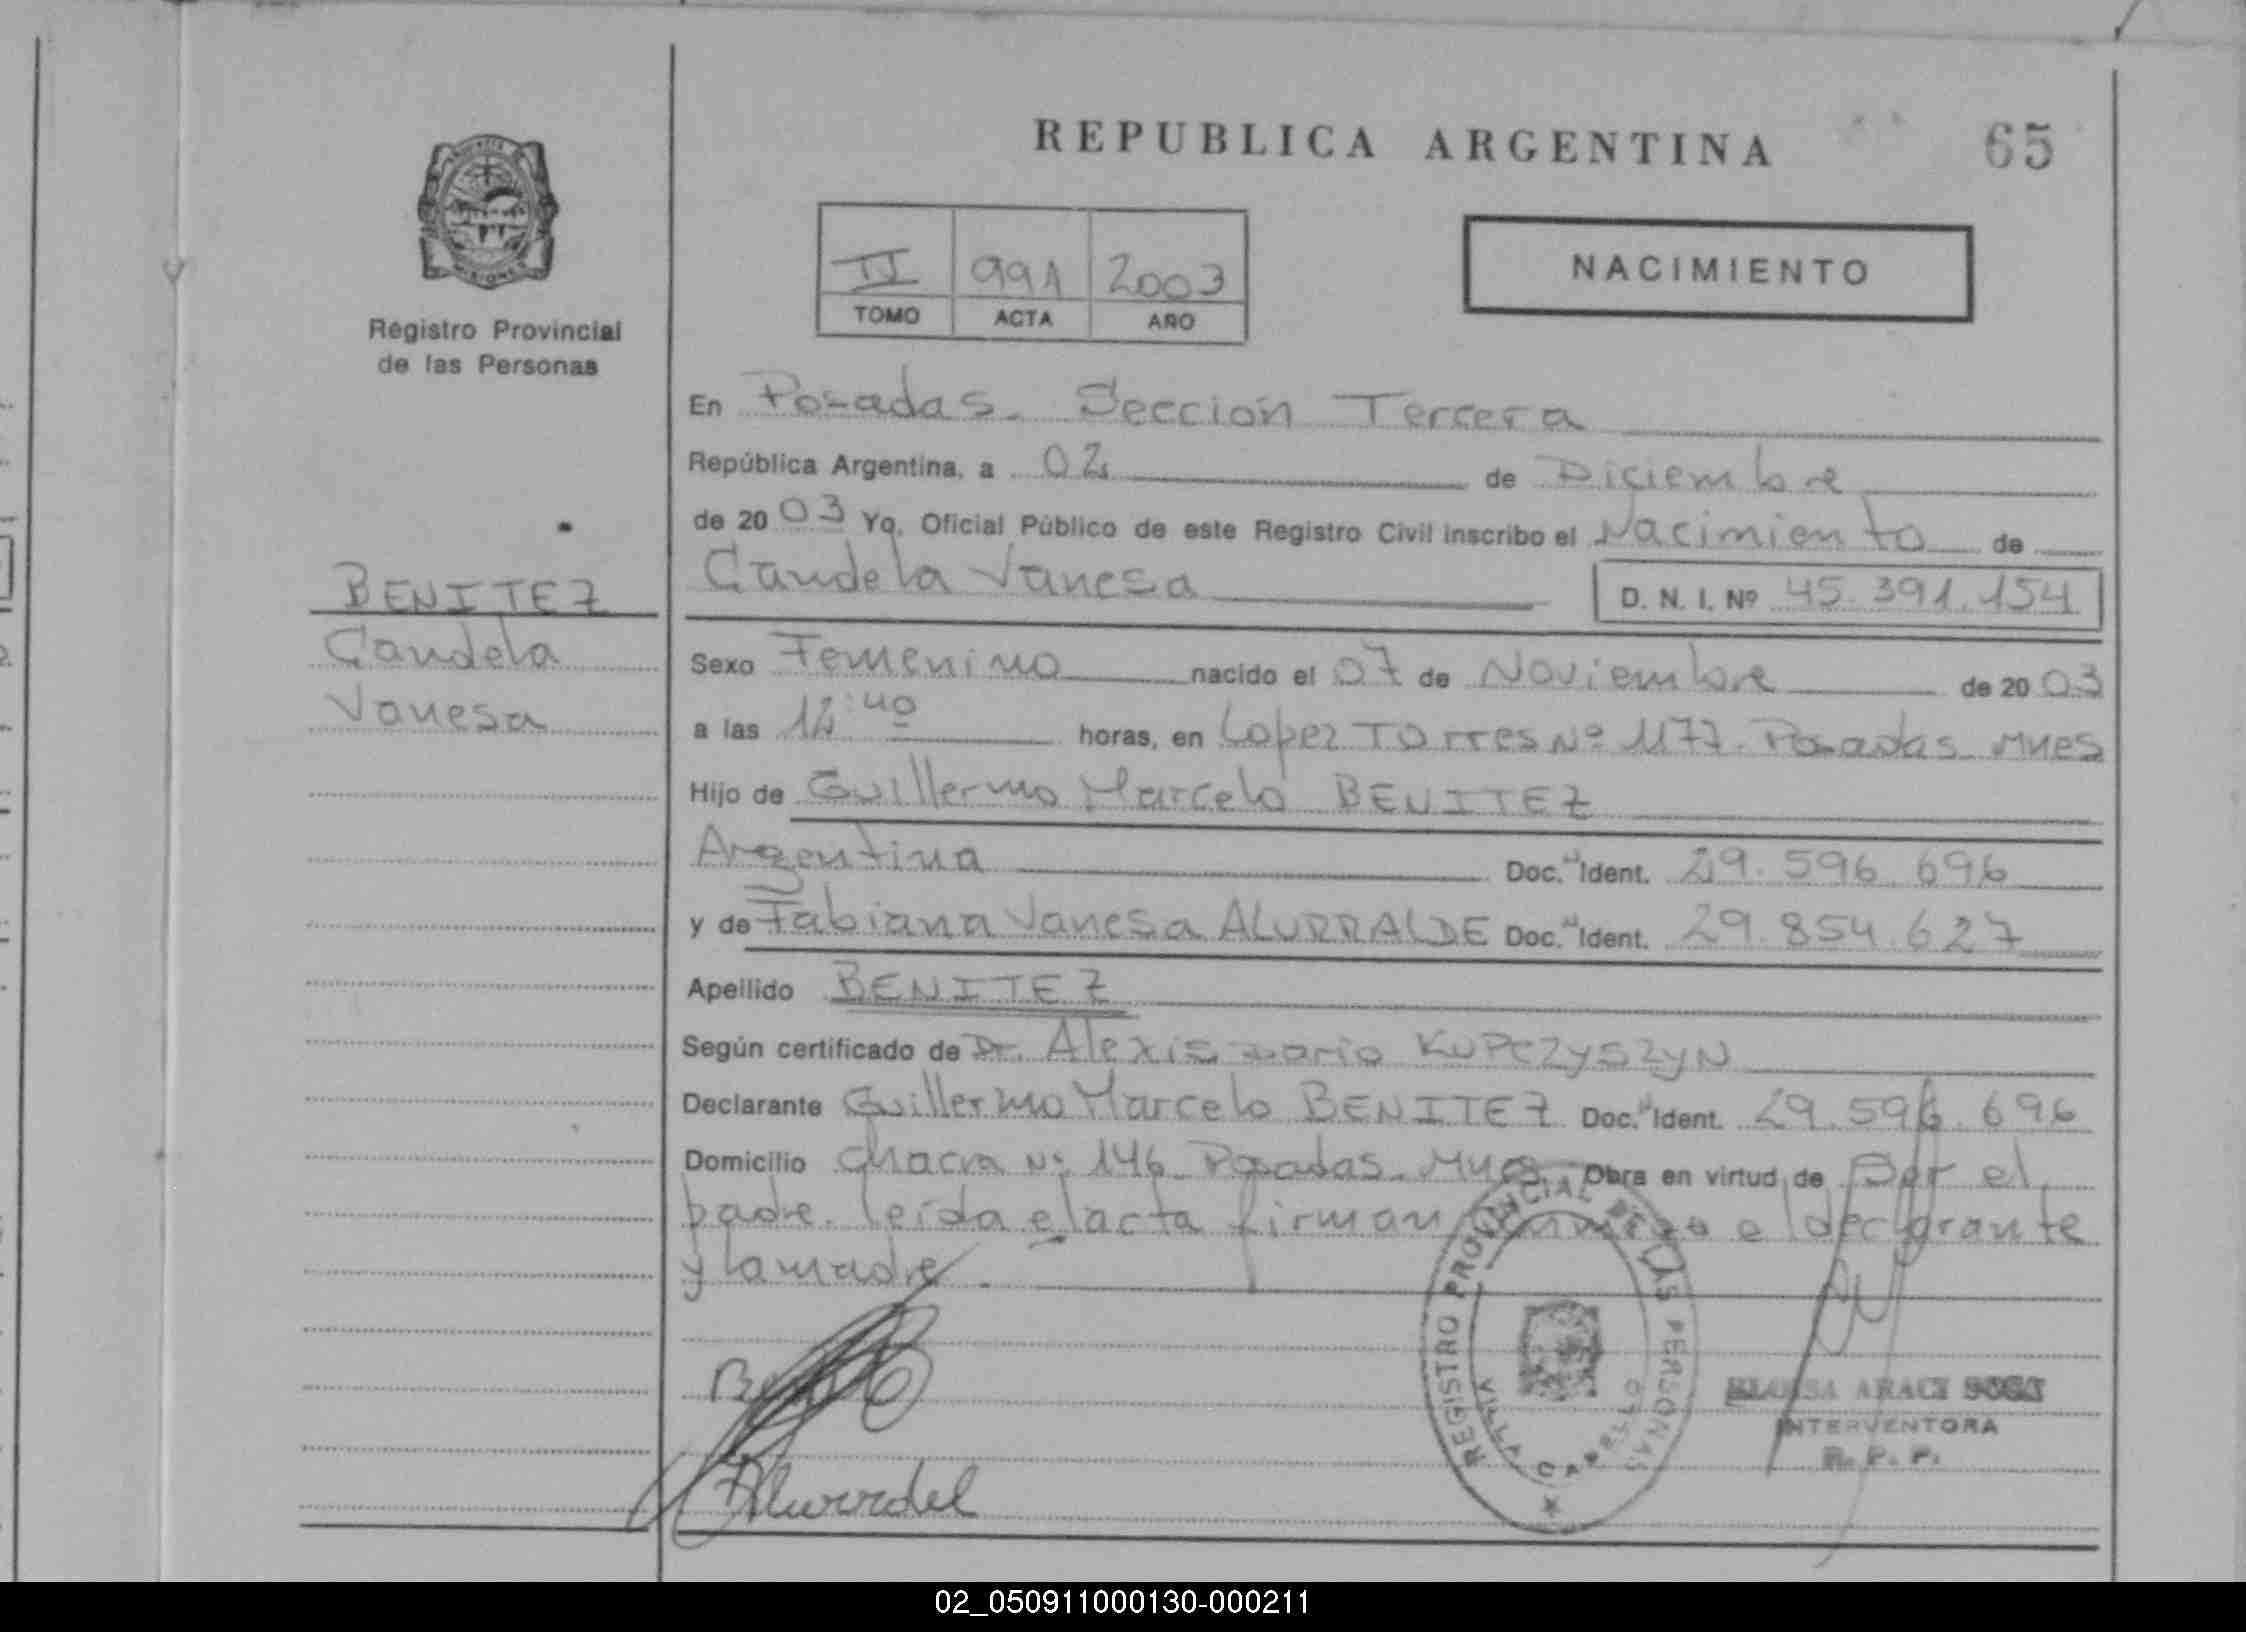 REPUBLICA ARGENTINA
65
II 991 2003
TOMO ACTA AÑO
NACIMIENTO
PROVINCIA DE
MISIONES
Registro Provincial
de las Personas
En Posadas. Sección Tercera
República Argentina, a 02 de Diciembre
de 20 03 Yo, Oficial Público de este Registro Civil inscribo el Nacimiento de
Candela Vanesa D. N. I. Nº 45.391.154
BENITEZ
Candela
Vanesa
Sexo Femenino nacido el 07 de Noviembre de 20 03
a las horas, en Lopez Torres Nº 1177. Posadas Mnes
Hijo de Guillermo Marcelo BENITEZ
Argentina Doc. Ident. 29.596.696
y de Fabiana Vanesa ALURRALDE Doc. Ident. 29.854.627
Apellido BENITEZ
Según certificado de Dr. Alexis Dario KUPCZYSZYN
Declarante Guillermo Marcelo BENITEZ Doc. Ident. 29.596.696
Domicilio Chacra Nº 146 Posadas. Mnes. Obra en virtud de Ser el
padre. leída el acta firman conmigo el declarante
y la madre.
REGISTRO PROVINCIAL DE LAS PERSONAS
VILLA CABELLO
INTERVENTORA
R. P. P.
02_050911000130-000211